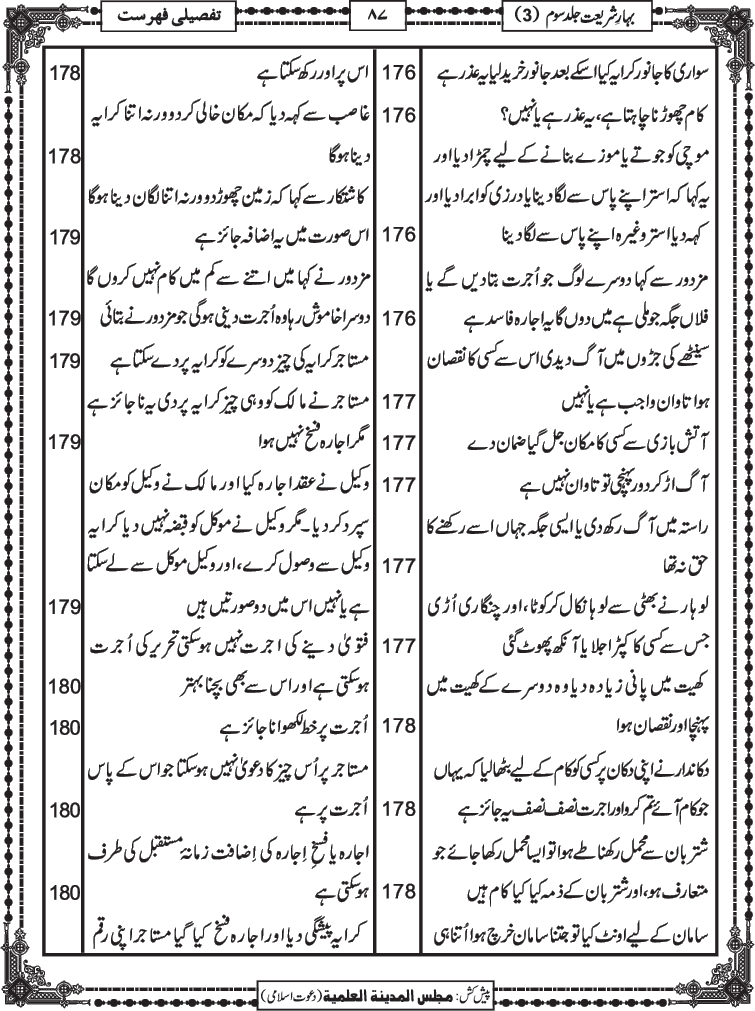 بہارِ شریعت جلد سوم (3)
۸۷
تفصیلی فہرست
سواری کا جانور کرایہ کیا اسکے بعد جانور خرید لیا یہ عذر ہے 176
کام چھوڑنا چاہتا ہے، یہ عذر ہے یا نہیں؟ 176
موچی کو جوتے یا موزے بنانے کے لیے چمڑا دیا اور
یہ کہا کہ استر اپنے پاس سے لگا دینا یا درزی کو ابرا دیا اور
کہہ دیا استر وغیرہ اپنے پاس سے لگا دینا 176
مزدور سے کہا دوسرے لوگ جو اُجرت بتا دیں گے یا
فلاں جگہ جو ملی ہے میں دوں گا یہ اجارہ فاسد ہے 176
سینٹھے کی جڑوں میں آگ دیدی اس سے کسی کا نقصان
ہوا تاوان واجب ہے یا نہیں 177
آتش بازی سے کسی کا مکان جل گیا ضمان دے 177
آگ اڑ کر دور پہنچی تو تاوان نہیں ہے 177
راستہ میں آگ رکھ دی یا ایسی جگہ جہاں اسے رکھنے کا
حق نہ تھا 177
لوہار نے بھٹی سے لوہا نکال کر کوٹا، اور چنگاری اُڑی
جس سے کسی کا کپڑا جلا یا آنکھ پھوٹ گئی 177
کھیت میں پانی زیادہ دیا وہ دوسرے کے کھیت میں
پہنچا اور نقصان ہوا 178
دکاندار نے اپنی دکان پر کسی کو کام کے لیے بٹھا لیا کہ یہاں
جو کام آئے تم کرو اور اجرت نصف نصف یہ جائز ہے 178
شتربان سے محمل رکھنا طے ہوا تو ایسا محمل رکھا جائے جو
متعارف ہو، اور شتربان کے ذمہ کیا کیا کام ہیں 178
سامان کے لیے اونٹ کیا تو جتنا سامان خرچ ہوا اُتنا ہی
اس پر اور رکھ سکتا ہے 178
غاصب سے کہہ دیا کہ مکان خالی کر دو ورنہ اتنا کرایہ
دینا ہوگا 178
کاشتکار سے کہا کہ زمین چھوڑ دو ورنہ اتنا لگان دینا ہوگا
اس صورت میں یہ اضافہ جائز ہے 179
مزدور نے کہا میں اتنے سے کم میں کام نہیں کروں گا
دوسرا خاموش رہا وہ اُجرت دینی ہوگی جو مزدور نے بتائی 179
مستاجر کرایہ کی چیز دوسرے کو کرایہ پر دے سکتا ہے 179
مستاجر نے مالک کو وہی چیز کرایہ پر دی یہ ناجائز ہے
مگر اجارہ فسخ نہیں ہوا 179
وکیل نے عقد اجارہ کیا اور مالک نے وکیل کو مکان
سپرد کر دیا۔ مگر وکیل نے موکل کو قبضہ نہیں دیا کرایہ
وکیل سے وصول کرے، اور وکیل موکل سے لے سکتا
ہے یا نہیں اس میں دو صورتیں ہیں 179
فتویٰ دینے کی اجرت نہیں ہو سکتی تحریر کی اُجرت
ہو سکتی ہے اور اس سے بھی بچنا بہتر 180
اُجرت پر خط لکھوانا جائز ہے 180
مستاجر پر اُس چیز کا دعویٰ نہیں ہو سکتا جو اس کے پاس
اُجرت پر ہے 180
اجارہ یا فسخِ اِجارہ کی اِضافت زمانۂ مستقبل کی طرف
ہو سکتی ہے 180
کرایہ پیشگی دیا اور اجارہ فسخ کیا گیا مستاجر اپنی رقم
پیش کش: مجلس المدینۃ العلمیۃ (دعوت اسلامی)